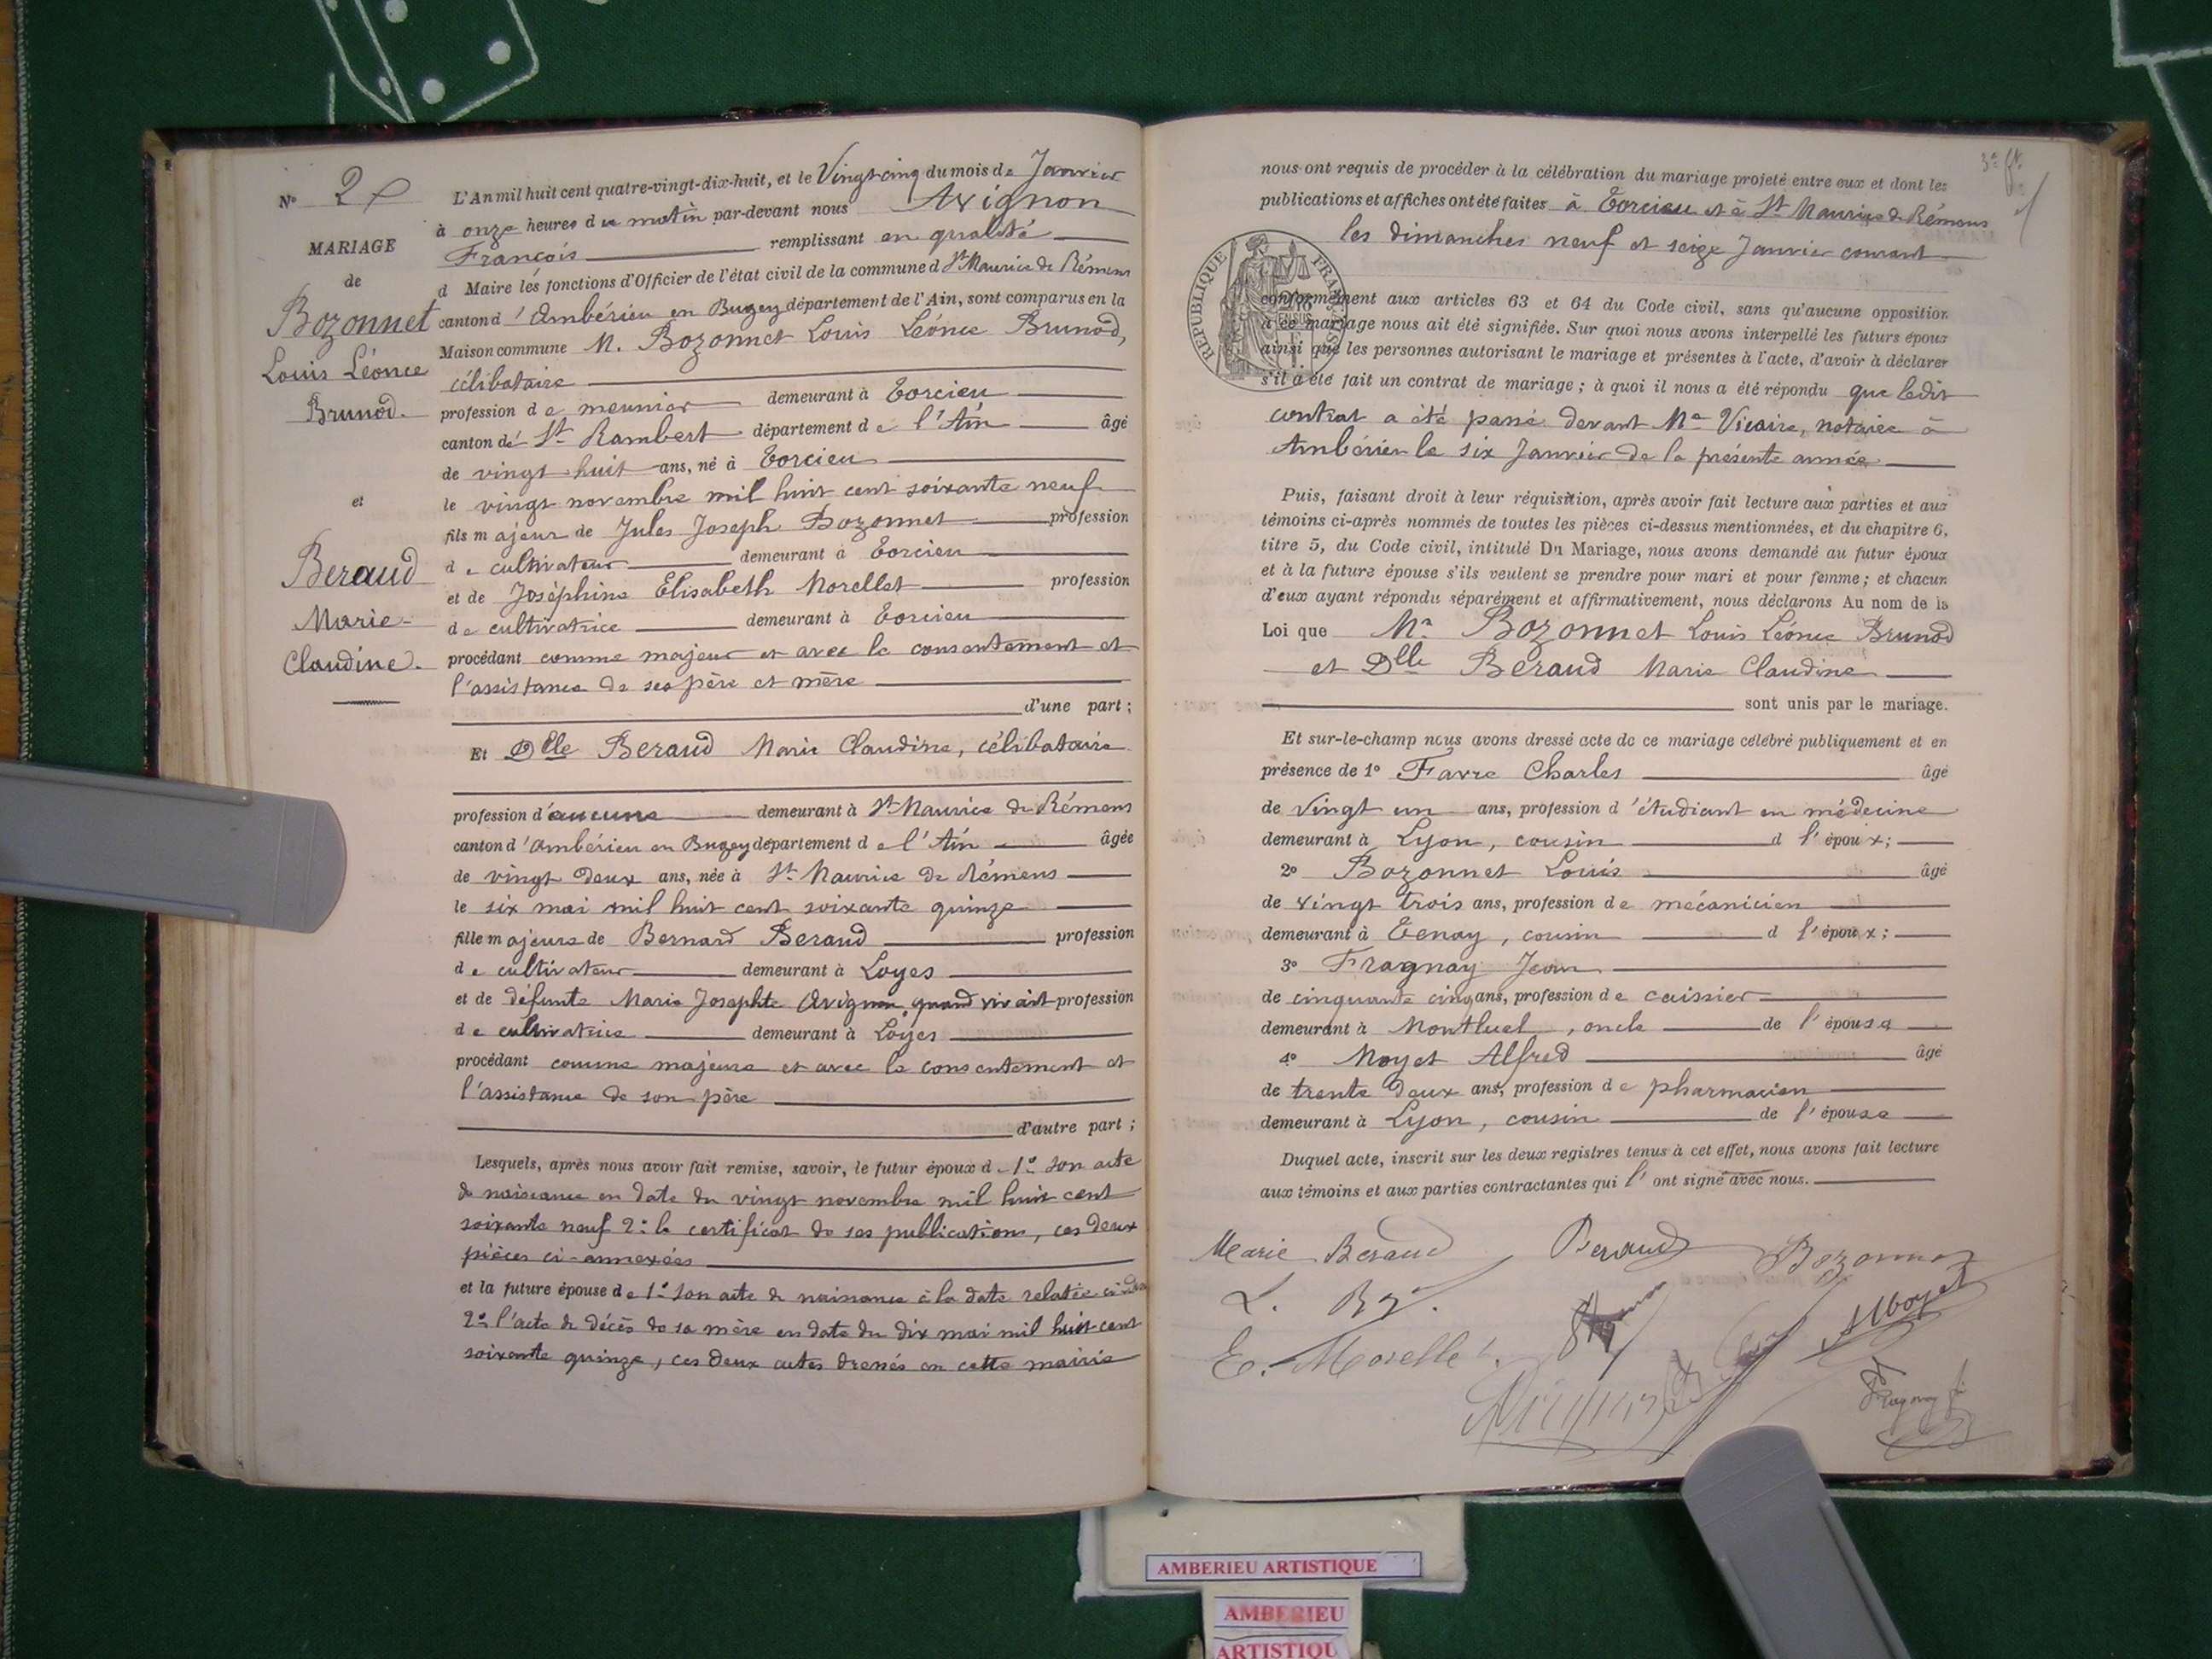 N° 2
MARIAGE
de
Bozonnet
Louis Léonce
Brunod.
et
Beraud
Marie
Claudine.
L'An mil huit cent quatre-vingt-dix-huit, et le Vingt cinq du mois de Janvier
à onze heures du matin par-devant nous Avignon
François remplissant en qualité
d Maire les fonctions d'Officier de l'état civil de la commune d St Maurice de Rémens
canton d'Ambérieu en Bugey département de l'Ain, sont comparus en la
Maison commune M. Bozonnet Louis Léonce Brunod,
célibataire
profession de meunier demeurant à Torcieu
canton de St Rambert département de l'Ain âgé
de vingt huit ans, né à Torcieu
le vingt novembre mil huit cent soixante neuf
fils majeur de Jules Joseph Bozonnet profession
de cultivateur demeurant à Torcieu
et de Joséphine Elisabeth Morellet profession
de cultivatrice demeurant à Torcieu
procédant comme majeur et avec le consentement et
l'assistance de ses père et mère
d'une part ;
Et Dlle Beraud Marie Claudine, célibataire
profession d'aucune demeurant à St Maurice de Rémens
canton d'Ambérieu en Bugey département de l'Ain âgée
de vingt deux ans, née à St Maurice de Rémens
le six mai mil huit cent soixante quinze
fille majeure de Bernard Beraud profession
de cultivateur demeurant à Loyes
et de défunte Marie Josephte Avignon, quand vivait profession
de cultivatrice demeurant à Loyes
procédant comme majeure et avec le consentement et
l'assistance de son père
d'autre part ;
Lesquels, après nous avoir fait remise, savoir, le futur époux d 1° son acte
de naissance en date du vingt novembre mil huit cent
soixante neuf 2° le certificat de ses publications, ces deux
pièces ci-annexées
et la future épouse de 1° son acte de naissance à la date relatée ci-dessus
2° l'acte de décès de sa mère en date du dix mai mil huit cent
soixante quinze, ces deux actes dressés en cette mairie
nous ont requis de procéder à la célébration du mariage projeté entre eux et dont les
publications et affiches ont été faites à Torcieu et à St Maurice de Rémens
les dimanches neuf et seize Janvier courant
RÉPUBLIQUE FRANÇAISE
conformément aux articles 63 et 64 du Code civil, sans qu'aucune opposition
à ce mariage nous ait été signifiée. Sur quoi nous avons interpellé les futurs époux
ainsi que les personnes autorisant le mariage et présentes à l'acte, d'avoir à déclarer
s'il a été fait un contrat de mariage ; à quoi il nous a été répondu que ledit
contrat a été passé devant Me Vicaire, notaire à
Ambérieu le six Janvier de la présente année
Puis, faisant droit à leur réquisition, après avoir fait lecture aux parties et aux
témoins ci-après nommés de toutes les pièces ci-dessus mentionnées, et du chapitre 6,
titre 5, du Code civil, intitulé Du Mariage, nous avons demandé au futur époux
et à la future épouse s'ils veulent se prendre pour mari et pour femme ; et chacun
d'eux ayant répondu séparément et affirmativement, nous déclarons Au nom de la
Loi que Mr Bozonnet Louis Léonce Brunod
et Dlle Beraud Marie Claudine
sont unis par le mariage.
Et sur-le-champ nous avons dressé acte de ce mariage célébré publiquement et en
présence de 1° Favre Charles âgé
de Vingt un ans, profession d'étudiant en médecine
demeurant à Lyon, cousin d l'époux ;
2° Bozonnet Louis âgé
de vingt trois ans, profession de mécanicien
demeurant à Tenay, cousin d l'époux ;
3° Fragnay Jean
de cinquante cinq ans, profession de caissier
demeurant à Montluel, oncle de l'épouse
4° Moyet Alfred âgé
de trente deux ans, profession de pharmacien
demeurant à Lyon, cousin de l'épouse
Duquel acte, inscrit sur les deux registres tenus à cet effet, nous avons fait lecture
aux témoins et aux parties contractantes qui l'ont signé avec nous.
Marie Beraud Beraud Bozonnet
L. Bz.
A Moyet
E. Morellet.
Avignon
Fragnay J
AMBERIEU ARTISTIQUE
AMBERIEU
ARTISTIQU